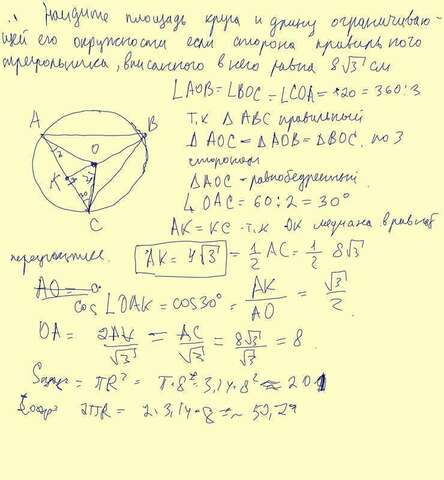 Найдите площадь круга и длину ограничиваю-
щей его окружности если сторона правильного
треугольника, вписанного в него равна 8√3 см
∠AOB = ∠BOC = ∠COA = 120 = 360:3
A
B
O
K
C
т.к △ ABC правильный
△ AOC = △AOB = △BOC по 3
сторонам
△AOC - равнобедренный
∠OAC = 60:2 = 30°
AK = KC т.к OK медиана в равноб
треугольнике.
AK = 4√3 = 1/2 AC = 1/2 8√3
AO =
cos ∠OAK = cos30° = AK/AO = √3/2
OA = 2AK/√3 = AC/√3 = 8√3/√3 = 8
= πR² = π·8² = 3,14·8² ≈ 201
2πR = 2·3,14·8 ≈ 50,24